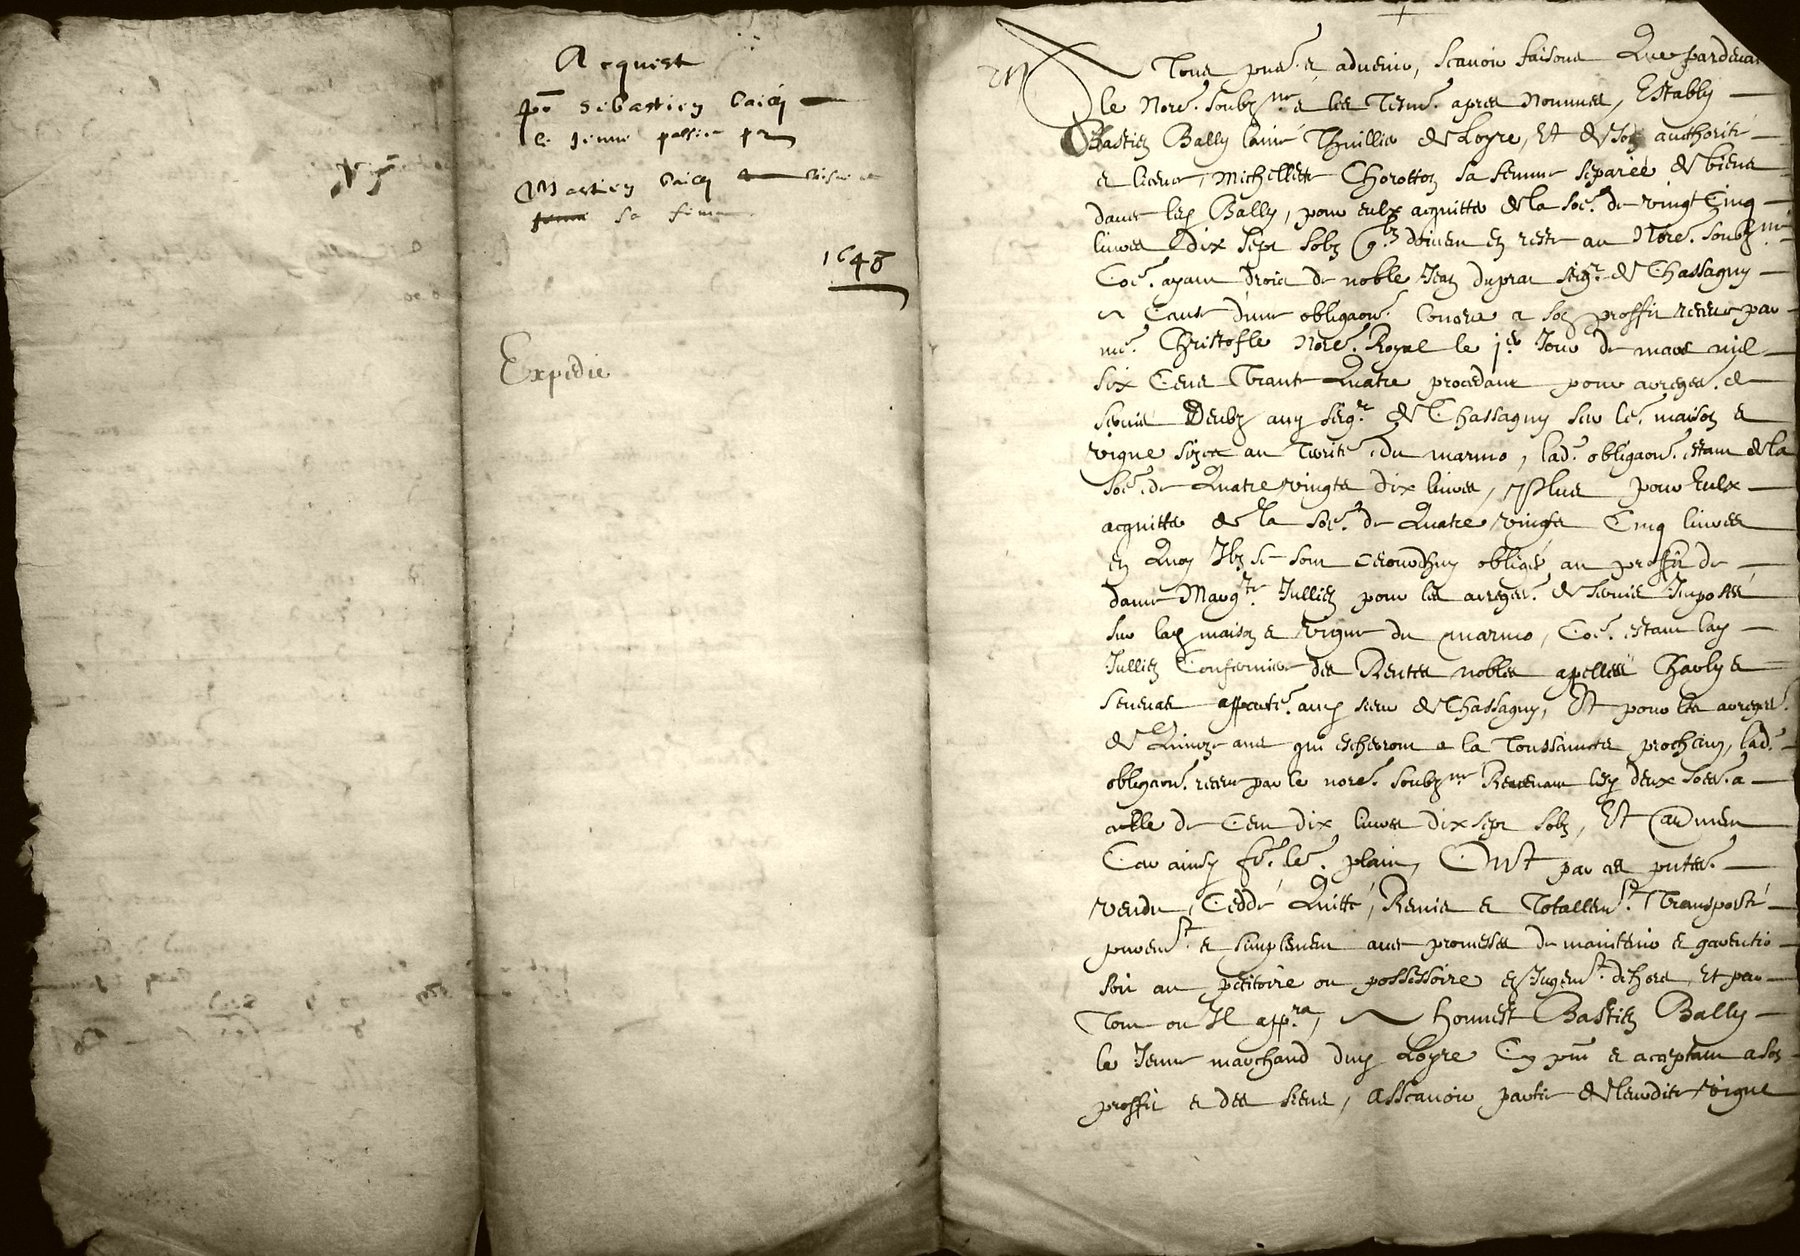 Acquest
po.r Sebastien Baily
le jeune
Bastien Baily
sa femme
1648
Expedie
A Tous pns. et advenir, scavoir faisons Que pardevant
le Nore. soubz.ne et les Tesm. apres Nommes, Estably
Bastien Bally laine Thuillier de Loyre, Et de son authorite
et licence, Michellette Chorotton sa femme separée de biens
davec led. Bally, pour eulx acquitter de la soe. de vingt Cinq
livres dix sept solz qz doivent en reste au Nore. soubz.ne
Coe. ayant droict de noble Jean duprat seigr. de Chassagny
a Cause d'une obligaon. Conceue a son proffit receue par
me. Christofle Nore. Royal le jer. Jour de mars mil
six Cens Trante Quatre procedant pour arreges. de
servis Deubz aud. seigr. de Chassagny sur les. maison et
vigne sizes au Territe. du marmo, lad. obligaon. estant de la
soe. de Quatre vingts dix livres, Plus pour Eulx
acquitter de la soe. de Quatre vingts Cinq livres
en Quoy Ilz se sont cejourdhuy obligés au proffit de
dame Margte. Jullien pour les arreges. de servis Imposes
sur lad. maison et vigne du marmo, Coe. estant lad.
Jullien Confermiere des Rentes nobles apellées Charly et
Senevas appartes. aud. sieur de Chassagny, Et pour les arreges.
de Quinze ans qui escherront a la Toussaincts prochain, lad.
obligaon. receue par le nore. soubz.ne Revenant lesd. deux soes. a
celle de Cent dix livres dix sept solz, Et
Car ainsy leur. plait, Ont par ces pntes.
vendu, Ceddé Quitté, Remis et Totallemt. Transporté
puremt. et simplement avec promesses de maintenir et garentir
soit au petitoire ou possessoire en Jugemt. dehors, Et par
Tout ou Il app.ra, A honnest Bastien Bally
le Jeune marchand dud. Loyre Cy pnt et acceptant a son
proffit et des siens, asscavoir partie de leurdite vigne